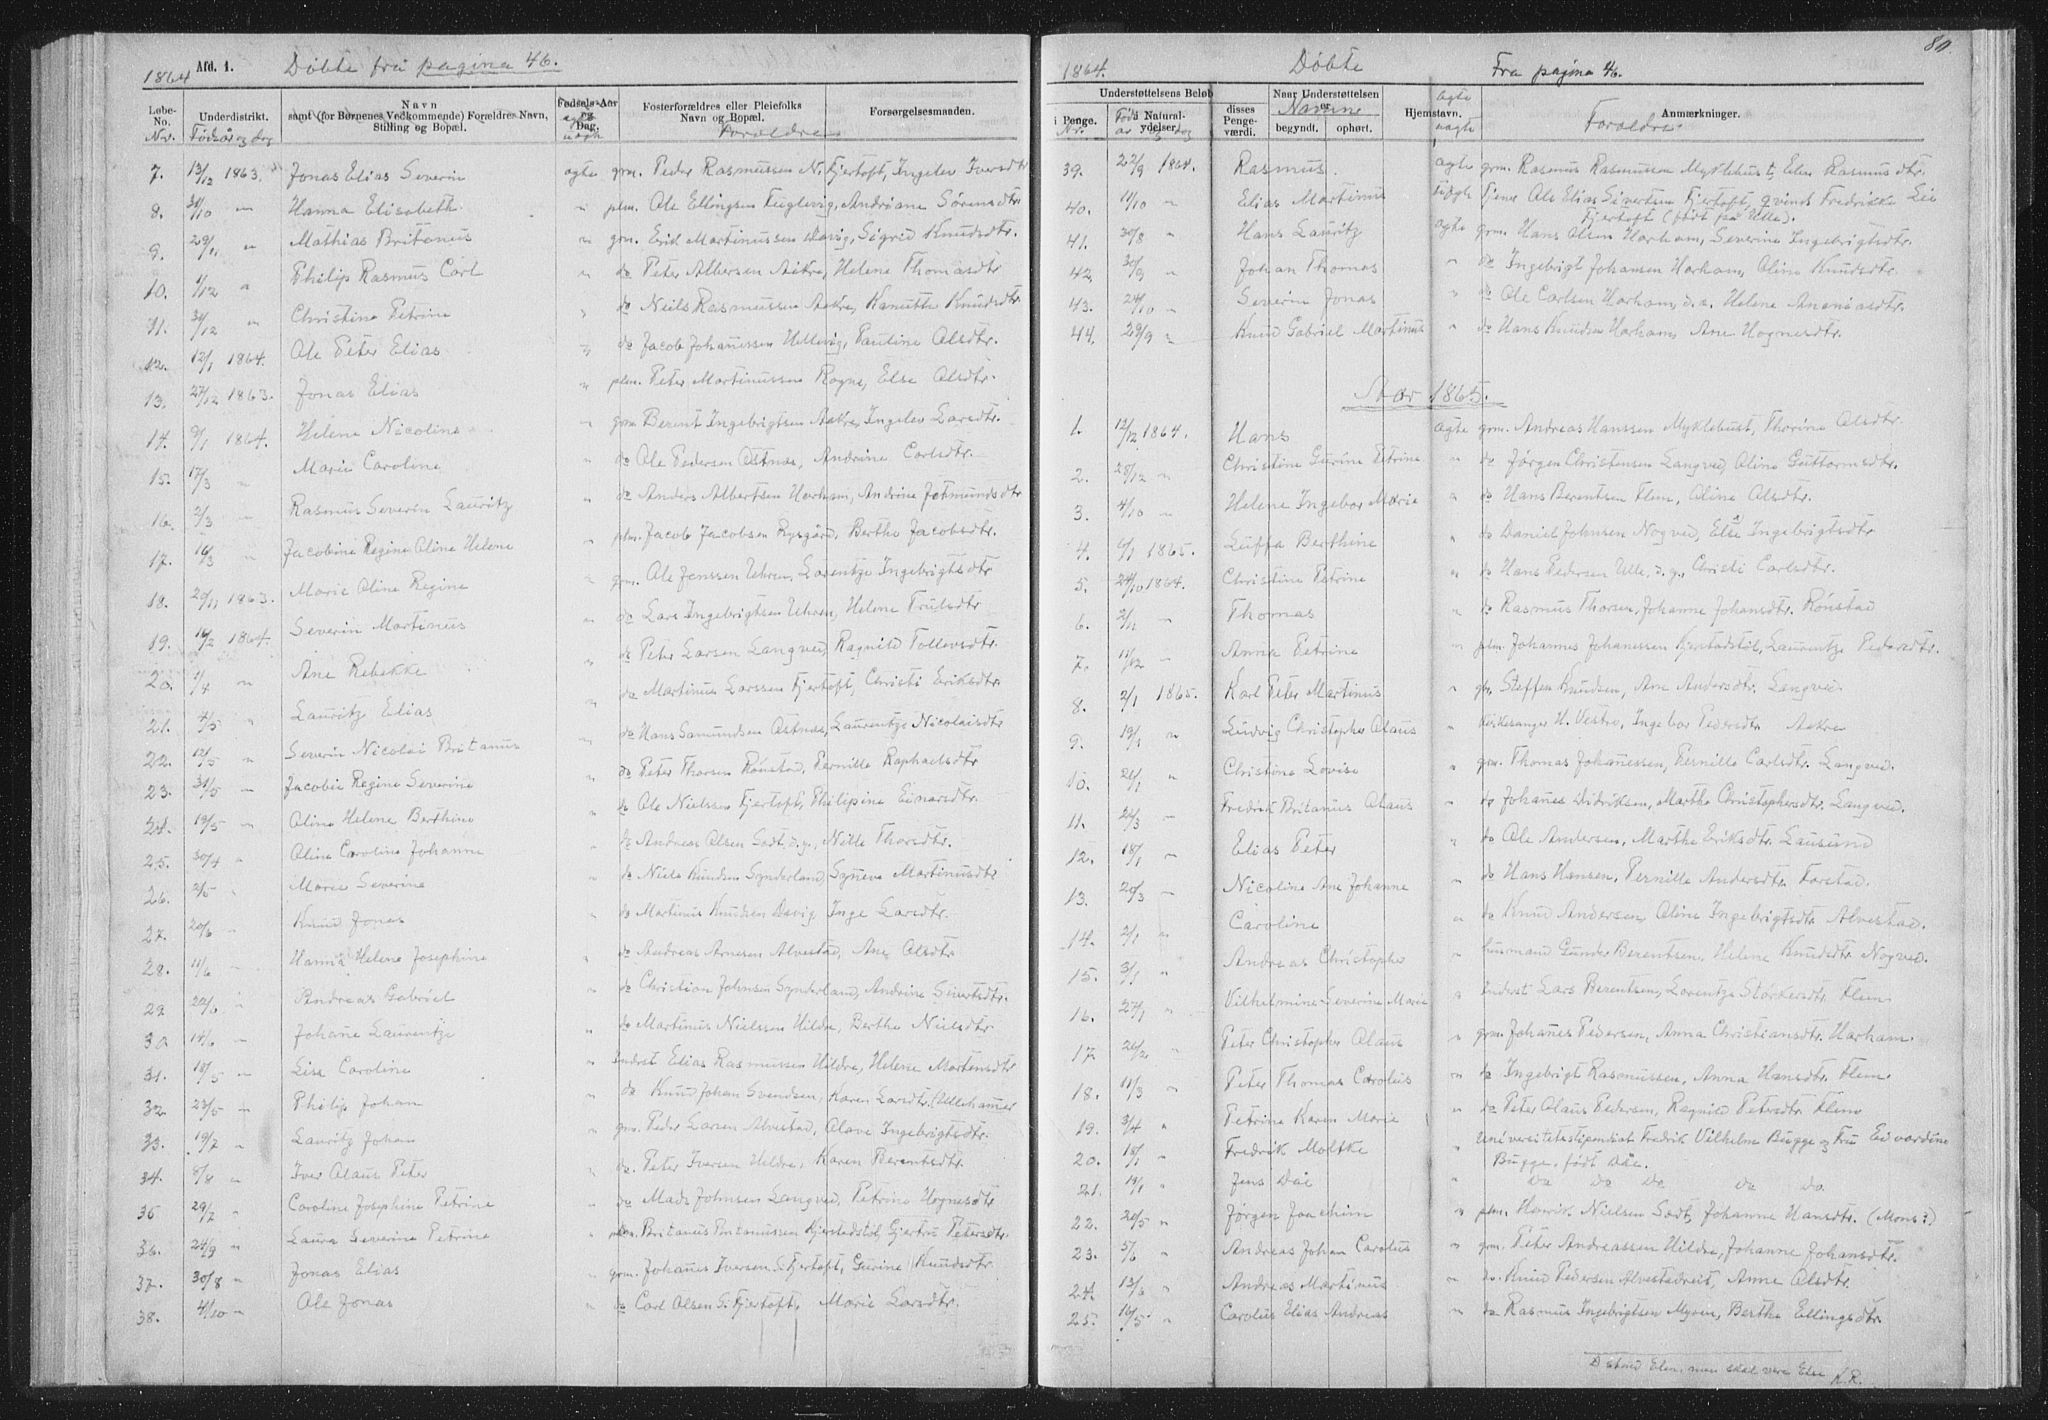 1864 Afd. 1. Døbte fra pagina 46.
Løbe-No. Underdistrikt. Navn samt (for Børnenes Vedkommende) Forældres Navn, Stilling og Bopæl. Fødsels-Aar og Dag. Fosterforældres eller Pleiefolks Navn og Bopæl. Forsørgelsesmaaden.
Nr. Fødsår og dag ægte uægte Forældre
7. 13/12 1863. Jonas Elias Severin ægte grm. Peder Rasmussen N. Fjertoft, Ingelev Iversdtr
8. 31/10 " Hanna Elisabeth " plm. Ole Ellingsen Fuglevig, Andriane Sørensdtr
9. 29/11 " Mathias Britanus " grm. Erik Martinussen Davig, Sigrid Knudsdtr.
10. 1/12 " Philip Rasmus Carl " do Peter Albersen Aakre, Helene Thomasdtr
11. 31/12 " Christine Petrine " do Niels Rasmussen Aakre, Kanutte Knudsdtr.
12. 12/1 1864. Ole Peter Elias " do Jacob Johanessen Hellevig, Pauline Olsdtr.
13. 27/12 1863. Jonas Elias " plm. Peter Martinussen Rogne, Else Olsdtr.
14. 9/1 1864. Helene Nicoline " grm Berent Ingebrigtsen Aakre, Ingelev Larsdtr.
15. 17/3 " Marie Caroline " do Ole Pedersen Østnæs, Andrine Carlsdtr.
16. 2/3 " Rasmus Severin Lauritz " do Anders Albertsen Harham, Andrine Jetmundsdtr
17. 16/3 " Jacobine Regine Oline Helene " plm. Jacob Jacobsen Rysgård, Berthe Jacobsdtr.
18. 29/11 1863. Marie Oline Regine " grm. Ole Jenssen Uhren, Lorentze Ingebrigtsdtr
19. 16/2 1864. Severin Martinus " do Lars Ingebrigtsen Uhren, Helene Trulsdtr
20. 1/4 " Ane Rebekke " do Peter Larsen Langved, Ragnild Tollevsdtr.
21. 4/5 " Lauritz Elias " do Martinus Larssen Fjertoft, Christi Eriksdtr.
22. 12/5 " Severin Nicolai Britanus " do Hans Samundsen Østnæs, Laurentze Nicolaisdtr
23. 31/5 " Jacobie Regine Severine " do Peter Thorsen Rönstad, Pernille Raphaelsdtr
24. 19/5 " Oline Helene Berthine " do Ole Nielssen Fjertoft, Philipine Einarsdtr.
25. 30/4 " Oline Caroline Johanne " do Andreas Olsen Sødt, d.y., Nille Thorsdtr.
26. 2/5 " Marie Severine " do Niels Knudsen Synderland, Syneve Martinusdtr
27. 20/6 " Knud Jonas " do Martinus Knudsen Davig, Inge Larsdtr.
28. 11/6 " Hanna Helene Josephine " do Andreas Arnesen Alvestad, Ane Olsdtr.
29 22/6 " Andreas Gabriel " do Christian Johnsen Synderland, Andrine Sivertsdtr.
30 14/6 " Johane Laurentze " do Martinus Nielssen Hildre, Berthe Nielsdtr
31. 18/5 " Lise Caroline " Inderst Elias Rasmussen Hildre, Helene Mortensdtr
32. 23/5 " Philip Johan " do Knud Johan Svendsen, Karen Larsdtr. Ullehammer
33. 19/7 " Lauritz Johan " grm. Peder Larsen Alvestad, Olave Ingebrigtsdtr.
34. 8/8 " Iver Olaus Peter " do. Peter Iversen Hildre, Karen Berentsdtr.
35 29/7 " Caroline Josephine Petrine " do Mads Johnsen Langved, Petrine Hognesdtr
36. 24/9 " Laura Severine Petrine " plm. Britanus Britanussen Kjerstadstöl, Gjertrud Petersdtr.
37. 30/8 " Jonas Elias " grm. Johanes Iversen S. Fjertoft, Gurine Knudsdtr.
38. 4/10 " Ole Jonas " do Carl Olsen S. Fjertoft, Marie Larsdtr.
1864. Døbte Fra pagina 46. 80
Understøttelsens Beløb i Penge. i Natural-ydelser. disses Penge-værdi. Naar Understøttelsen er begyndt. ophørt. Hjemstavn. Anmærkninger.
Nr. Føds år og dag Navne ægte uægte Forældre
39. 22/9 1864. Rasmus. ægte grm. Rasmus Rasmussen Myklebust, Elen Rasmusdtr.
40. 11/10 " Elias Martinus uægte Tjener Ole Elias Sivertsen Fjertoft, qvinde Fredrikke Lie
Fjertoft (født på Ulle).
41. 30/8 " Hans Lauritz ægte grm. Hans Olsen Harham, Severine Ingebrigtsdtr.
42. 30/9 " Johan Thomas " do Ingebrigt Johansen Harham, Oline Knudsdtr.
43. 24/10 " Severin Jonas " do Ole Carlsen Harham, d.æ. Helene Ananiasdtr.
44. 29/9 " Knud Gabriel Martinus " do Hans Knudsen Harham, Ane Hognesdtr.
Aar 1865.
1. 12/12 1864. Hans ægte grm. Andreas Hanssen Myklebust, Thorine Olsdtr.
2. 28/12 " Christine Gurine Petrine " do Jørgen Christensen Langved, Oline Guttormsdtr.
3. 4/10 " Helene Ingebor Marie " do Hans Berentsen Flem, Oline Olsdtr.
4. 6/1 1865. Luffa Berthine " do Daniel Johnsen Nogved, Else Ingebrigtsdtr
5. 24/10 1864. Christine Petrine " do Hans Pedersen Ulle, d.y., Christi Carlsdtr.
6. 2/11 " Thomas " do Rasmus Thorsen, Johanne Johansdtr. Rönstad
7. 11/12 " Anna Petrine " plm. Johannes Johanessen Kjerstadstöl, Laurentze Pedersdtr.
8. 2/1 1865. Karl Peter Martinus " grm. Steffen Knudsen, Ane Andersdtr. Langved
9. 19/1 " Ludvig Christopher Olaus " Kirkesanger H. Vestre, Ingebor Pedersdtr Aakre
10. 21/1 " Christine Lovise " grm. Thomas Johanessen, Pernille Carlsdtr. Langved.
11. 26/3 " Fredrik Britanus Olaus " do Johanes Didriksen, Marthe Christophersdtr. Langved.
12. 18/1 " Elias Peter " do Ole Andersen, Marthe Eriksdtr. Lausund
13. 20/3 " Nicoline Ane Johanne " do Hans Hansen, Pernille Andersdtr. Farstad.
14. 2/1 " Caroline " do Knud Andersen, Oline Ingebrigtsdtr Alvestad.
15. 3/1 " Andreas Christopher " husmand Gunder Berentsen, Helene Knudsdtr Nogved.
16. 27/1 " Vilhelmine Severine Marie " Inderst Lars Berentsen, Lorentze Størkersdtr. Flem
17 26/2 " Peter Christopher Olaus " grm. Johanes Pedersen, Anna Christiansdtr. Harham.
18. 11/3 " Peter Thomas Carolus " do Ingebrigt Rasmussen, Anna Hansdtr. Flem
19. 3/4 " Petrine Karen Marie " do Peter Olaus Pedersen, Ragnild Petersdtr. Flem
20. 18/1 " Fredrik Moltke " Universitetsstipendiat Fredrik Vilhelm Bugge og Fru Edvardine
Bugge, født Dåe.
21. 19/1 " Jens Dåe " Do Do Do Do Do.
22. 20/5 " Jørgen Joachim " plm. Henrik Nielsen Sødt, Johanne Hansdtr. (Mons?)
23. 5/6 " Andreas Johan Carolus " grm. Peter Andreassen Hildre, Johanne Johansdtr.
24. 13/6 " Andreas Martinus " do. Knud Pedersen Alvestadreit, Anne Olsdtr.
25. 16/5 " Carolus Elias Andreas " do Rasmus Ingebrigtsen Myren, Berthe Ellingsdtr.
D stond Elen, men skal vere Else K.R.